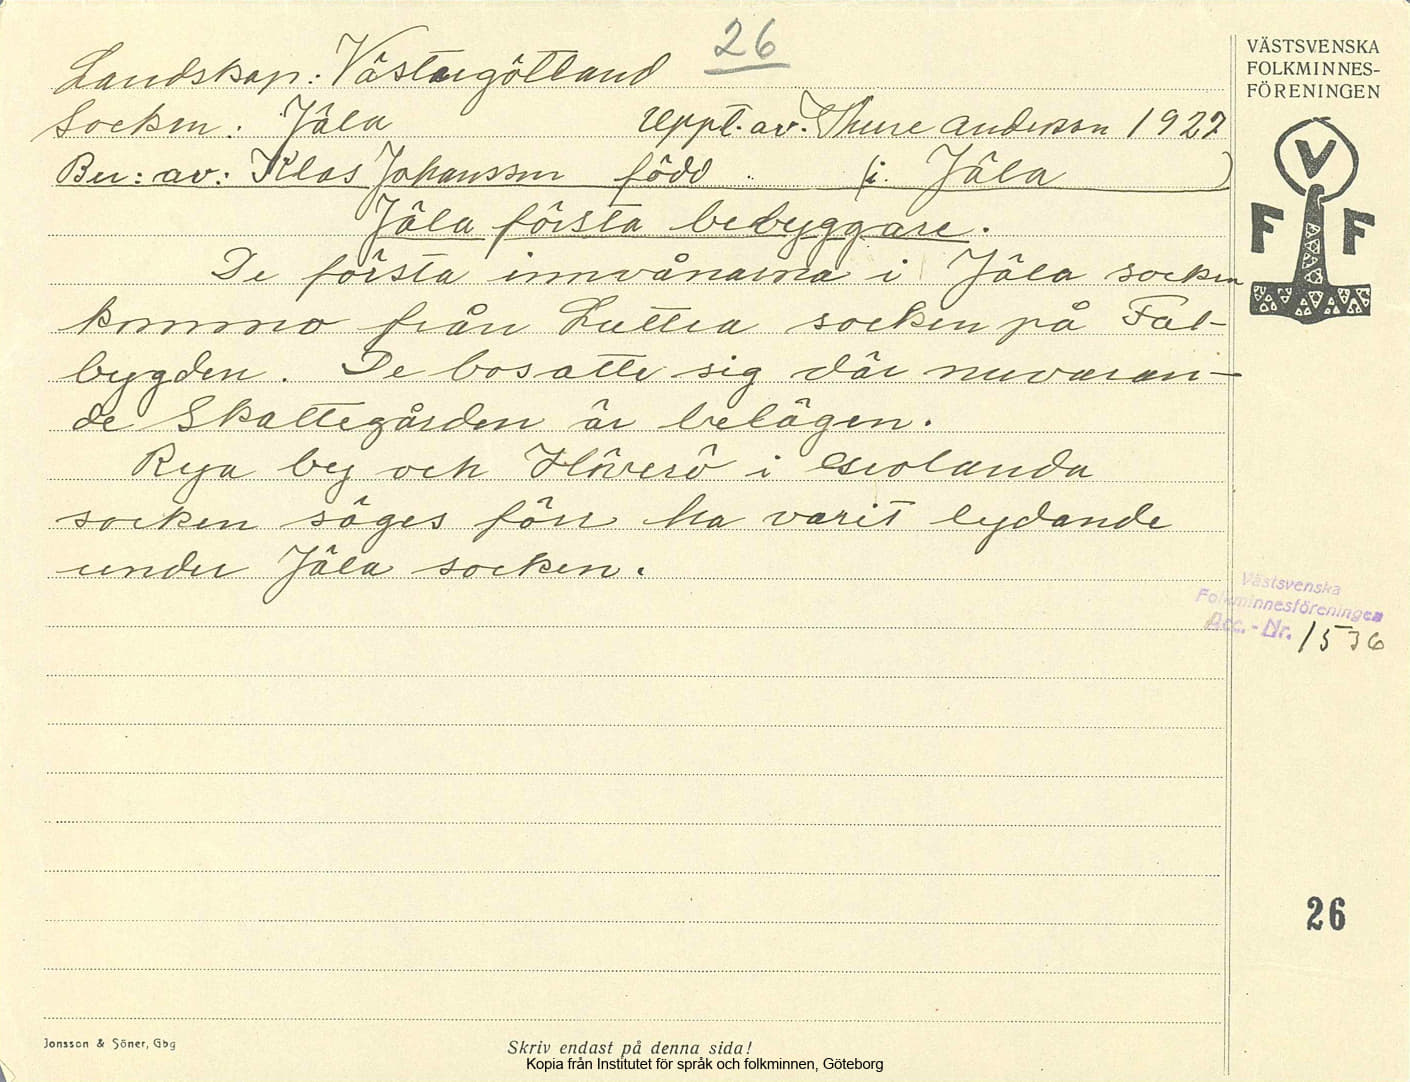 26
Landskap: Västergötland
Socken: Jäla Uppt. av. Thure Anderson 1927
Ber: av: Klas Johansson född (i Jäla )
Jäla första bebyggare.
De första innvånarna i Jäla socken
kommo från Luttra socken på Fal-
bygden. De bosatte sig där nuvaran-
de Skattegården är belägen.
Rya by och Höverö i Grolanda
socken säges förr ha varit lydande
under Jäla socken.
VÄSTSVENSKA
FOLKMINNES-
FÖRENINGEN
V
F F
Västsvenska
Folkminnesföreningen
Acc.-Nr. 1536
26
Jonsson & Söner, Gbg
Skriv endast på denna sida!
Kopia från Institutet för språk och folkminnen, Göteborg